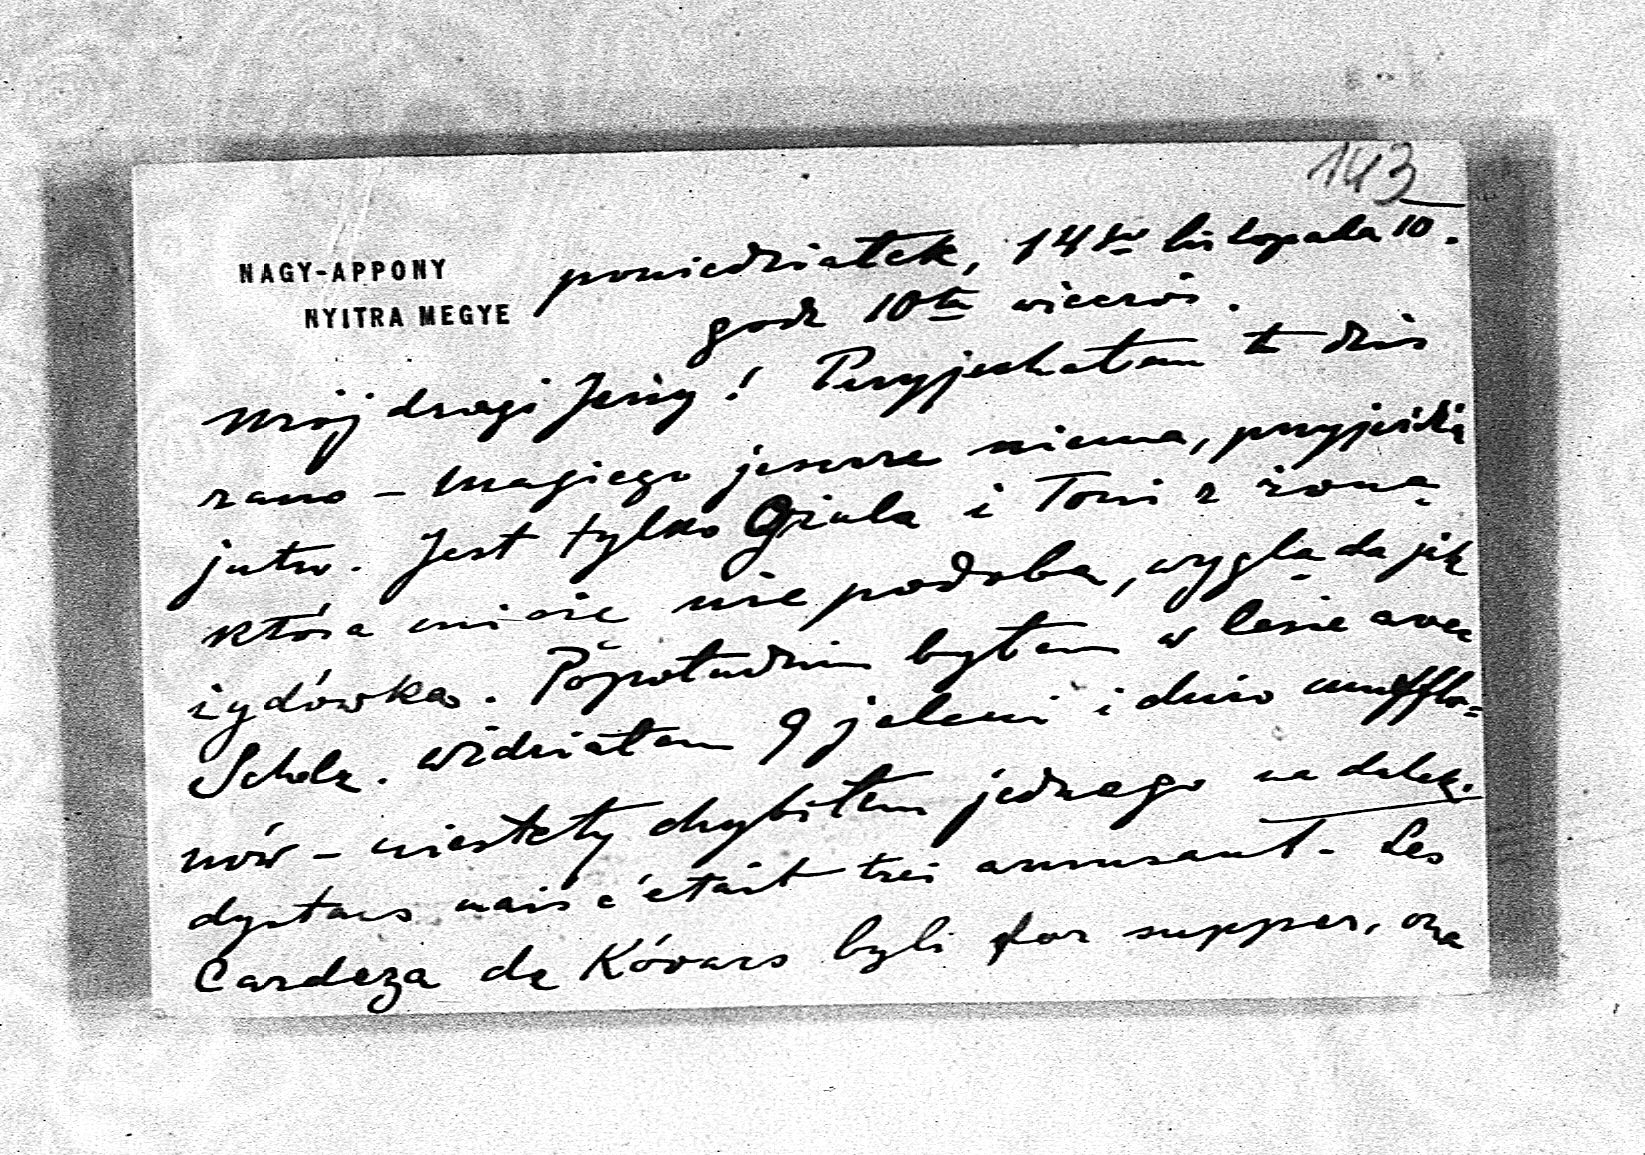 143
NAGY-APPONY
NYITRA MEGYE
poniedziałek, 14go listopada 10.
godz 10ta wieczór.
Mój drogi Jerzy! Przyjechałam tu dziś
rano – Magiego jeszcze niema, przyjeżdża
jutro. Jest tylko Gziula i Toni z żoną
która mi się nie podoba, wygląda jak
żydówka. Popołudniu byłam w lesie avec
Scholz. Widziałam 9 jeleni i dużo mufflo=
nów – niestety chybiłam jednego na dalek.
dystans mais c'était très amusant. Les
Cardeza de Kóvars byli for supper, ona